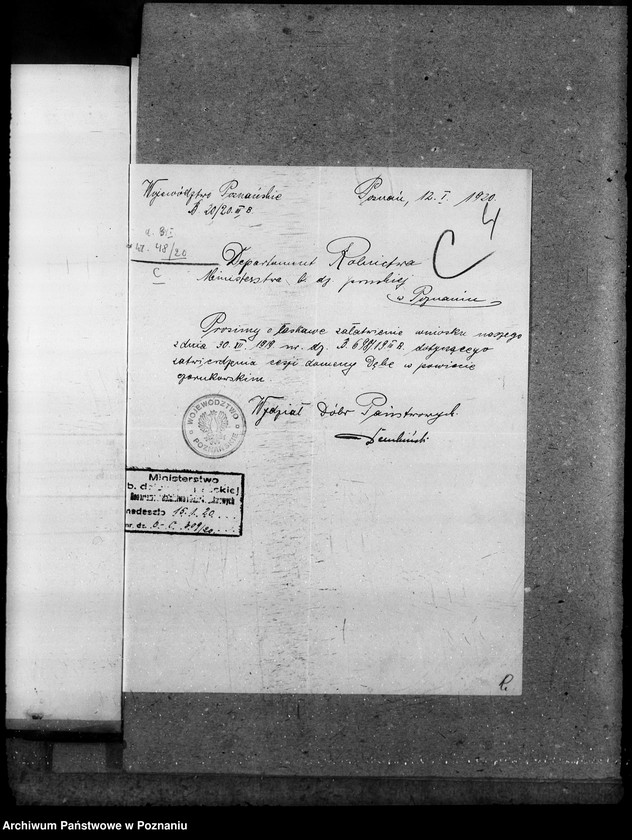 Województwo Poznańskie
Poznań, 12. I. 1920.
4
D. 20/20. III B.
48/20
C
C
Departament Rolnictwa
Ministerstwa b. dz. pruskiej
w Poznaniu
Prosimy o łaskawe załatwienie wniosku naszego
z dnia 30. XII. 1919. nr. dz. D. dotyczącego
zatwierdzenia cesji domeny Dębe w powiecie
czarnkowskim.
Wydział Dóbr Państwowych.
WOJEWÓDZTWO
POZNAŃSKIE
Ministerstwo
b. dzielnicy pruskiej
nadeszło 15. 1. 20
nr. dz.
Archiwum Państwowe w Poznaniu